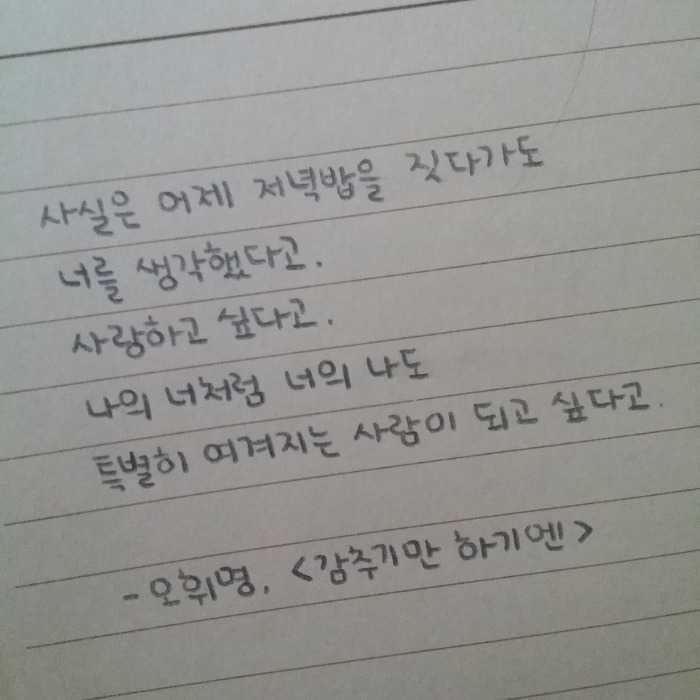 사실은 어제 저녁밥을 짓다가도
너를 생각했다고.
사랑하고 싶다고.
나의 너처럼 너의 나도
특별히 여겨지는 사람이 되고 싶다고.
- 오휘명, <감추기만 하기엔>